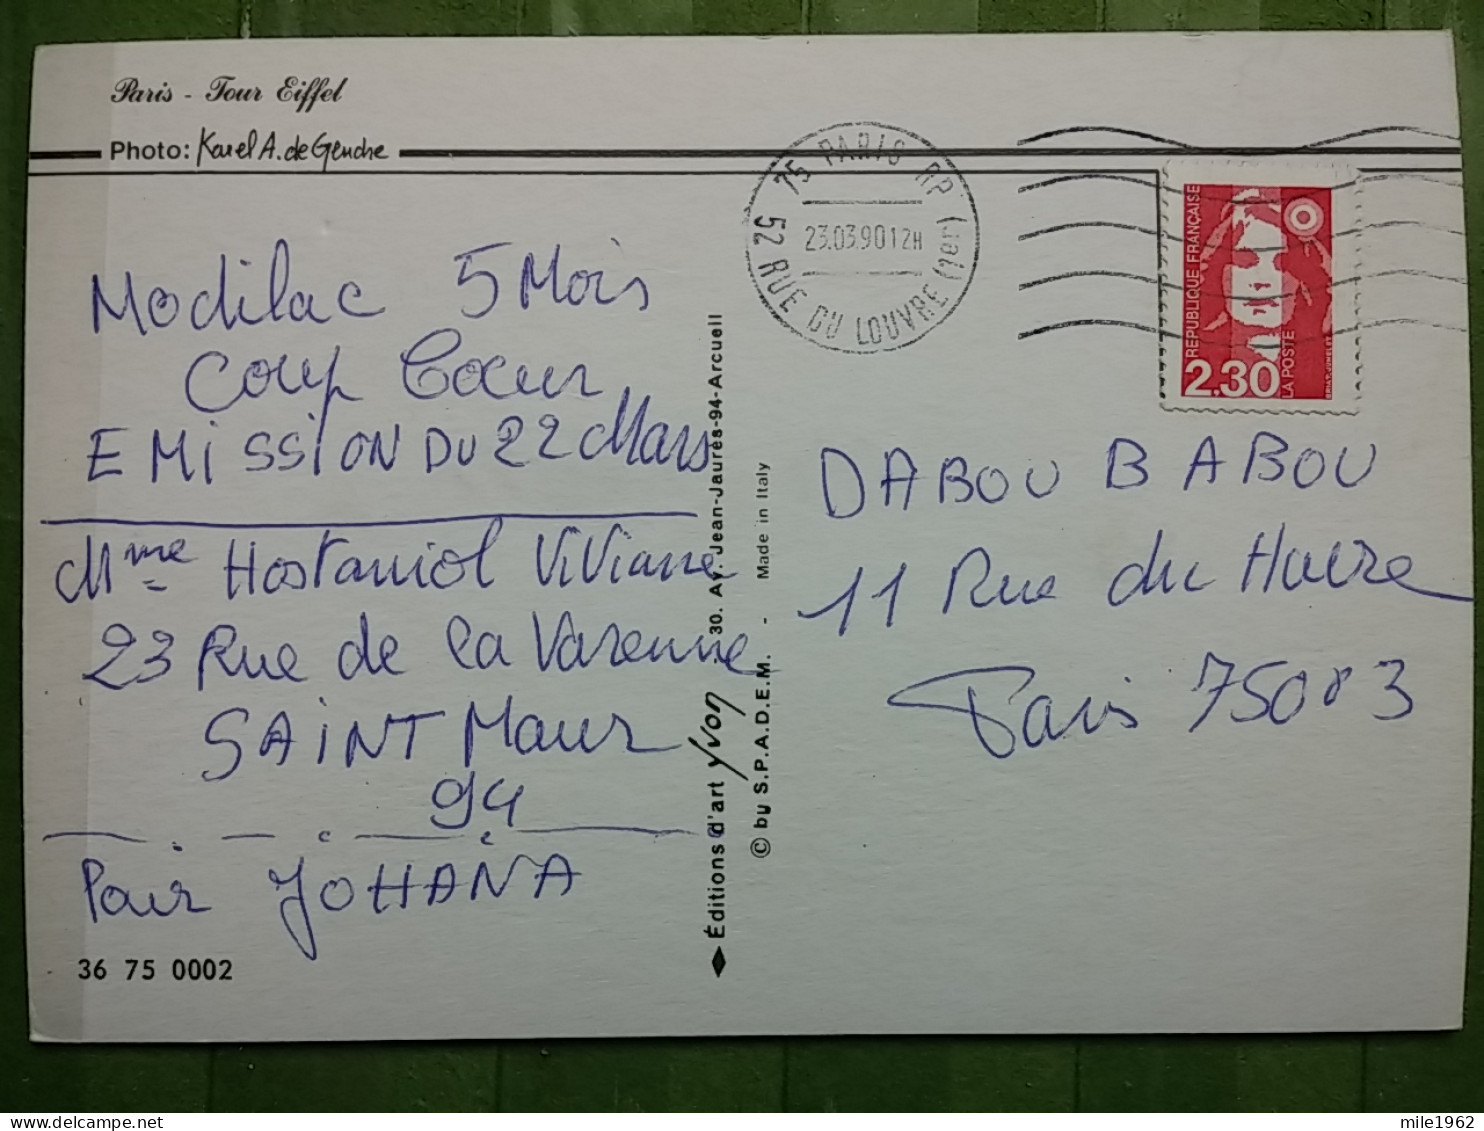 Paris - Tour Eiffel
Photo: Karel A. de Gendre
Modilac 5 Mois
Coup Coeur
EMISSION DU 22 Mars
Mme Hostamiol Viviane
23 Rue de la Varenne
SAINT Maur
94
Pour JOHANA
36 75 0002
Éditions d'art yvon - 30. Av. Jean-Jaurès-94-Arcueil
© by S.P.A.D.E.M. - Made in Italy
75 PARIS RP (1er)
52 RUE DU LOUVRE
23.03.90 12H
REPUBLIQUE FRANÇAISE
2,30
LA POSTE
DABOU BABOU
11 Rue du Havre
Paris 75083
mile1962